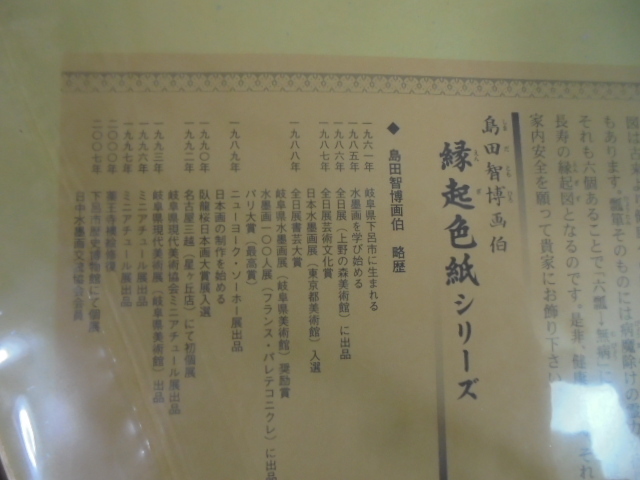 もあります。瓢箪そのものには病魔除けの
それも六個あることで「六瓢＝無病」に
長寿の縁起図となるのです。是非、健康
家内安全を願って貴家にお飾り下さい
島田智博画伯
縁起色紙シリーズ
◆ 島田智博画伯 略歴
一九六一年 岐阜県下呂市に生まれる
一九八五年 水墨画を学び始める
一九八六年 全日展（上野の森美術館）に出品
一九八七年 全日展芸術文化賞
日本水墨画展（東京都美術館）入選
一九八八年 全日展書芸大賞
岐阜県水墨画展（岐阜県美術館）奨励賞
水墨画一〇〇人展（フランス・パレデコニクレ）に出品
パリ大賞（最高賞）
一九八九年 ニューヨーク・ソーホー展出品
日本画の制作を始める
一九九〇年 臥龍桜日本画大賞展入選
一九九二年 名古屋三越（星ヶ丘店）にて初個展
岐阜県現代美術協会ミニアチュール展出品
一九九三年 岐阜県現代美術展（岐阜県美術館）出品
一九九六年 ミニアチュール展出品
一九九七年 ミニアチュール展出品
二〇〇〇年
二〇〇七年 下呂市歴史博物館にて個展
日中水墨画交流協会会員